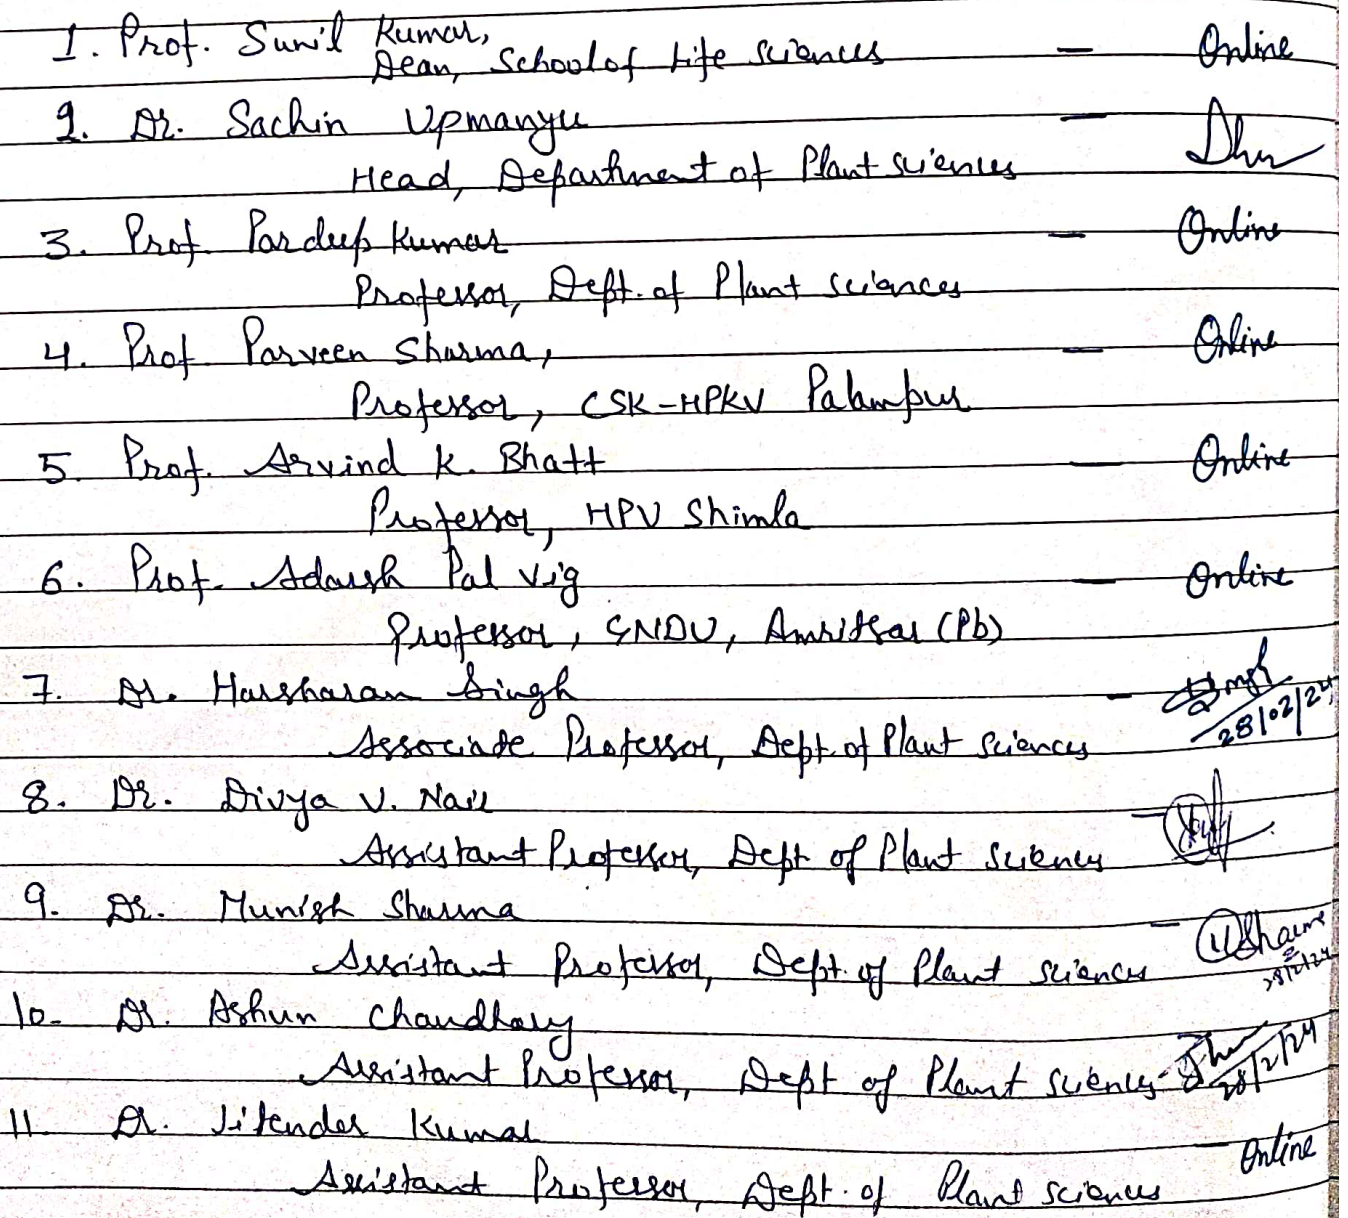 1. Prof. Sunil Kumar, — Online
Dean, School of Life Sciences
2. Dr. Sachin Upmanyu —
Head, Department of Plant Sciences
3. Prof. Pardeep Kumar — Online
Professor, Deptt. of Plant Sciences
4. Prof. Parveen Sharma, — Online
Professor, CSK-HPKV Palampur
5. Prof. Arvind K. Bhatt — Online
Professor, HPU Shimla
6. Prof. Adarsh Pal Vig — Online
Professor, GNDU, Amritsar (Pb)
7. Dr. Harsharan Singh — Singh
28/02/24
Associate Professor, Deptt. of Plant Sciences
8. Dr. Divya V. Nair —
Assistant Professor, Deptt of Plant Sciences
9. Dr. Munish Sharma — MSharma
28/2/24
Assistant Professor, Deptt. of Plant Sciences
10- Dr. Ashun Chaudhary
Assistant Professor, Deptt of Plant Sciences -
28/2/24
11. Dr. Jitender Kumar — Online
Assistant Professor, Deptt. of Plant Sciences